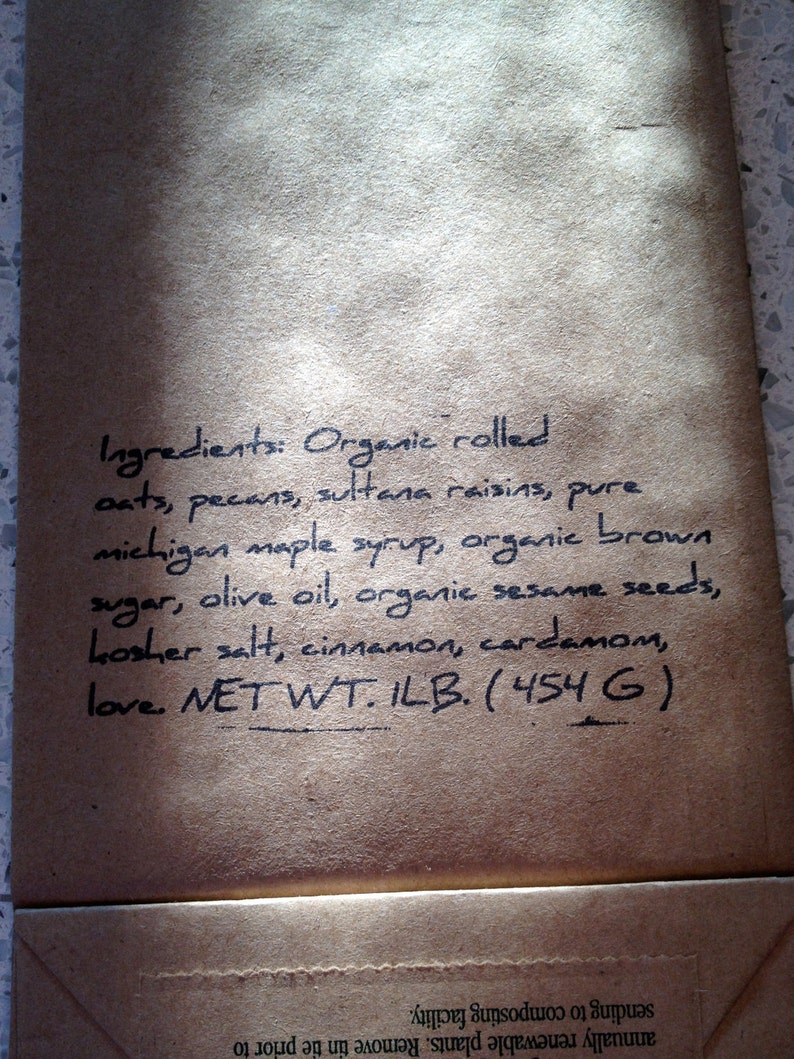 Ingredients: Organic rolled
oats, pecans, sultana raisins, pure
michigan maple syrup, organic brown
sugar, olive oil, organic sesame seeds,
kosher salt, cinnamon, cardamom,
love. NET WT. 1LB. ( 454 G )
annually renewable plants. Remove tin tie prior to
sending to composting facility.